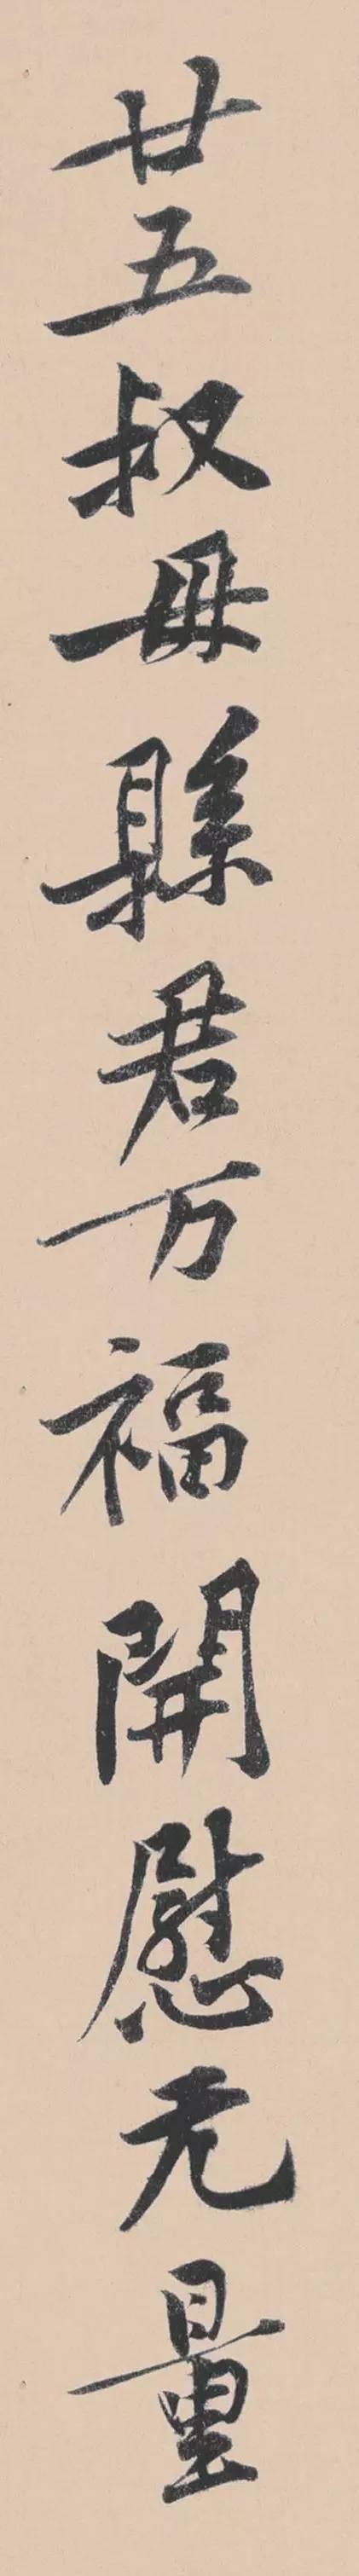 廿五叔母縣君万福開慰无量